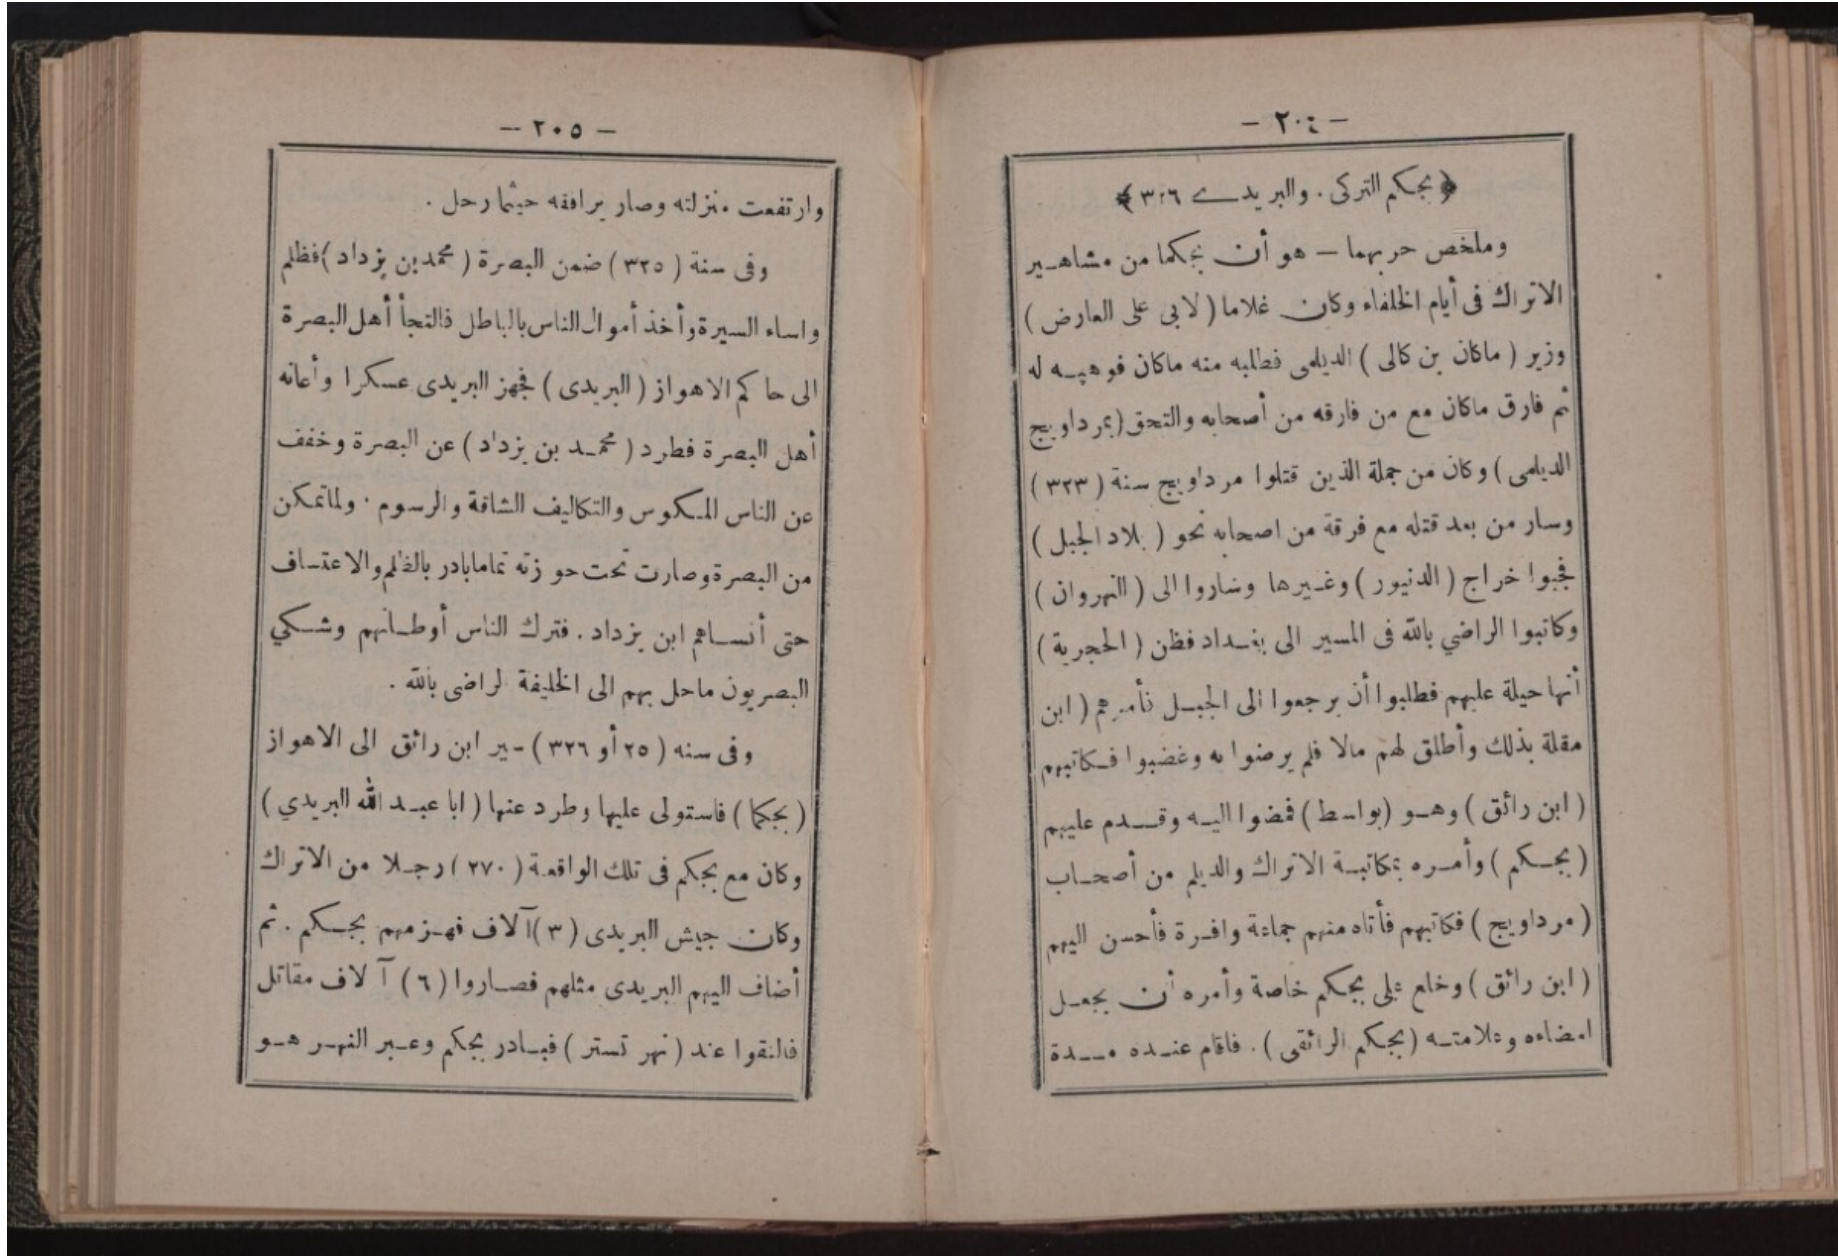 — ٢٠٤ —
﴿ بجكم التركى . والبريدے ٣٢٦ ﴾
وملخص حربهما — هو أن بجكما من مشاهير
الاتراك فى أيام الخلفاء وكان غلاما ( لابى على العارض )
وزير ( ماكان بن كالى ) الديلمى فطلبه منه ماكان فوهبه له
ثم فارق ماكان مع من فارقه من أصحابه والتحق ( بمرداويج
الديلمى ) وكان من جملة الذين قتلوا مرداويج سنة ( ٣٢٣ )
وسار من بعد قتله مع فرقة من اصحابه نحو ( بلاد الجبل )
فجبوا خراج ( الدنيور ) وغيرها وساروا الى ( النهروان )
وكاتبوا الراضي بالله فى المسير الى بغداد فظن ( الحجرية )
أنها حيلة عليهم فطلبوا أن يرجعوا الى الجبل فأمرهم ( ابن
مقلة بذلك وأطلق لهم مالا فلم يرضوا به وغضبوا فكاتبهم
( ابن رائق ) وهو ( بواسط ) فمضوا اليه وقدم عليهم
( بجكم ) وأمره بمكاتبة الاتراك والديلم من أصحاب
( مرداويج ) فكاتبهم فأتاه منهم جماعة وافرة فأحسن اليهم
( ابن رائق ) وخلع على بجكم خاصة وأمره أن يجعل
امضاءه وعلامته ( بجكم الرائقى ) . فاقام عنده مدة
— ٢٠٥ —
وارتفعت منزلته وصار يرافقه حيثما رحل .
وفى سنة ( ٣٢٥ ) ضمن البصرة ( محمد بن يزداد ) فظلم
واساء السيرة وأخذ أموال الناس بالباطل فالتجأ أهل البصرة
الى حاكم الاهواز ( البريدى ) فجهز البريدى عسكرا وأعانه
أهل البصرة فطرد ( محمد بن يزداد ) عن البصرة وخفف
عن الناس المكوس والتكاليف الشاقة والرسوم . ولما تمكن
من البصرة وصارت تحت حوزته تماما بادر بالظلم والاعتساف
حتى أنساهم ابن يزداد . فترك الناس أوطانهم وشكي
البصريون ماحل بهم الى الخليفة لراضى بالله .
وفى سنه ( ٢٥ أو ٣٢٦ ) ـير ابن رائق الى الاهواز
( بجكما ) فاستولى عليها وطرد عنها ( ابا عبد الله البريدي )
وكان مع بجكم فى تلك الواقعة ( ٢٧٠ ) رجلا من الاتراك
وكان جيش البريدى ( ٣ ) آلاف فهزمهم بجكم . ثم
أضاف اليهم البريدى مثلهم فصاروا ( ٦ ) آلاف مقاتل
فالتقوا عند ( نهر تستر ) فبادر بجكم وعبر النهر هو